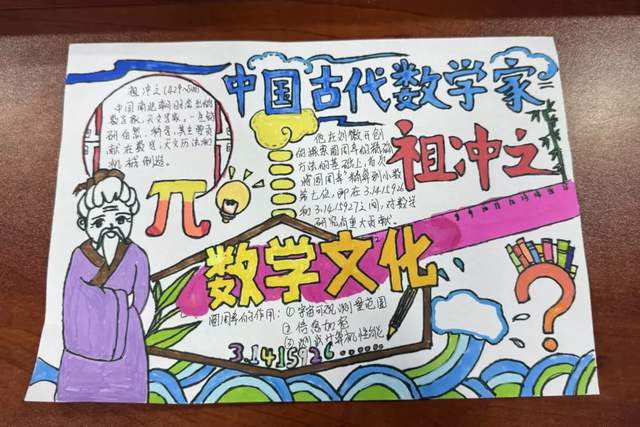 中国古代数学家
祖冲之
祖冲之(429~500)
中国南北朝时杰出的
数学家、天文学家。一生钻
研自然科学,其主要贡
献在数学、天文历法和
机械制造。
他在刘徽开创
的探索圆周率的精确
方法的基础上,首次
将"圆周率"精算到小数
第七位,即在3.1415926
和3.1415927之间,对数学
研究有重大贡献。
π
数学文化
圆周率的作用:①宇宙可观测量范围
②信息加密
③测试计算机性能
3.1415926......
?